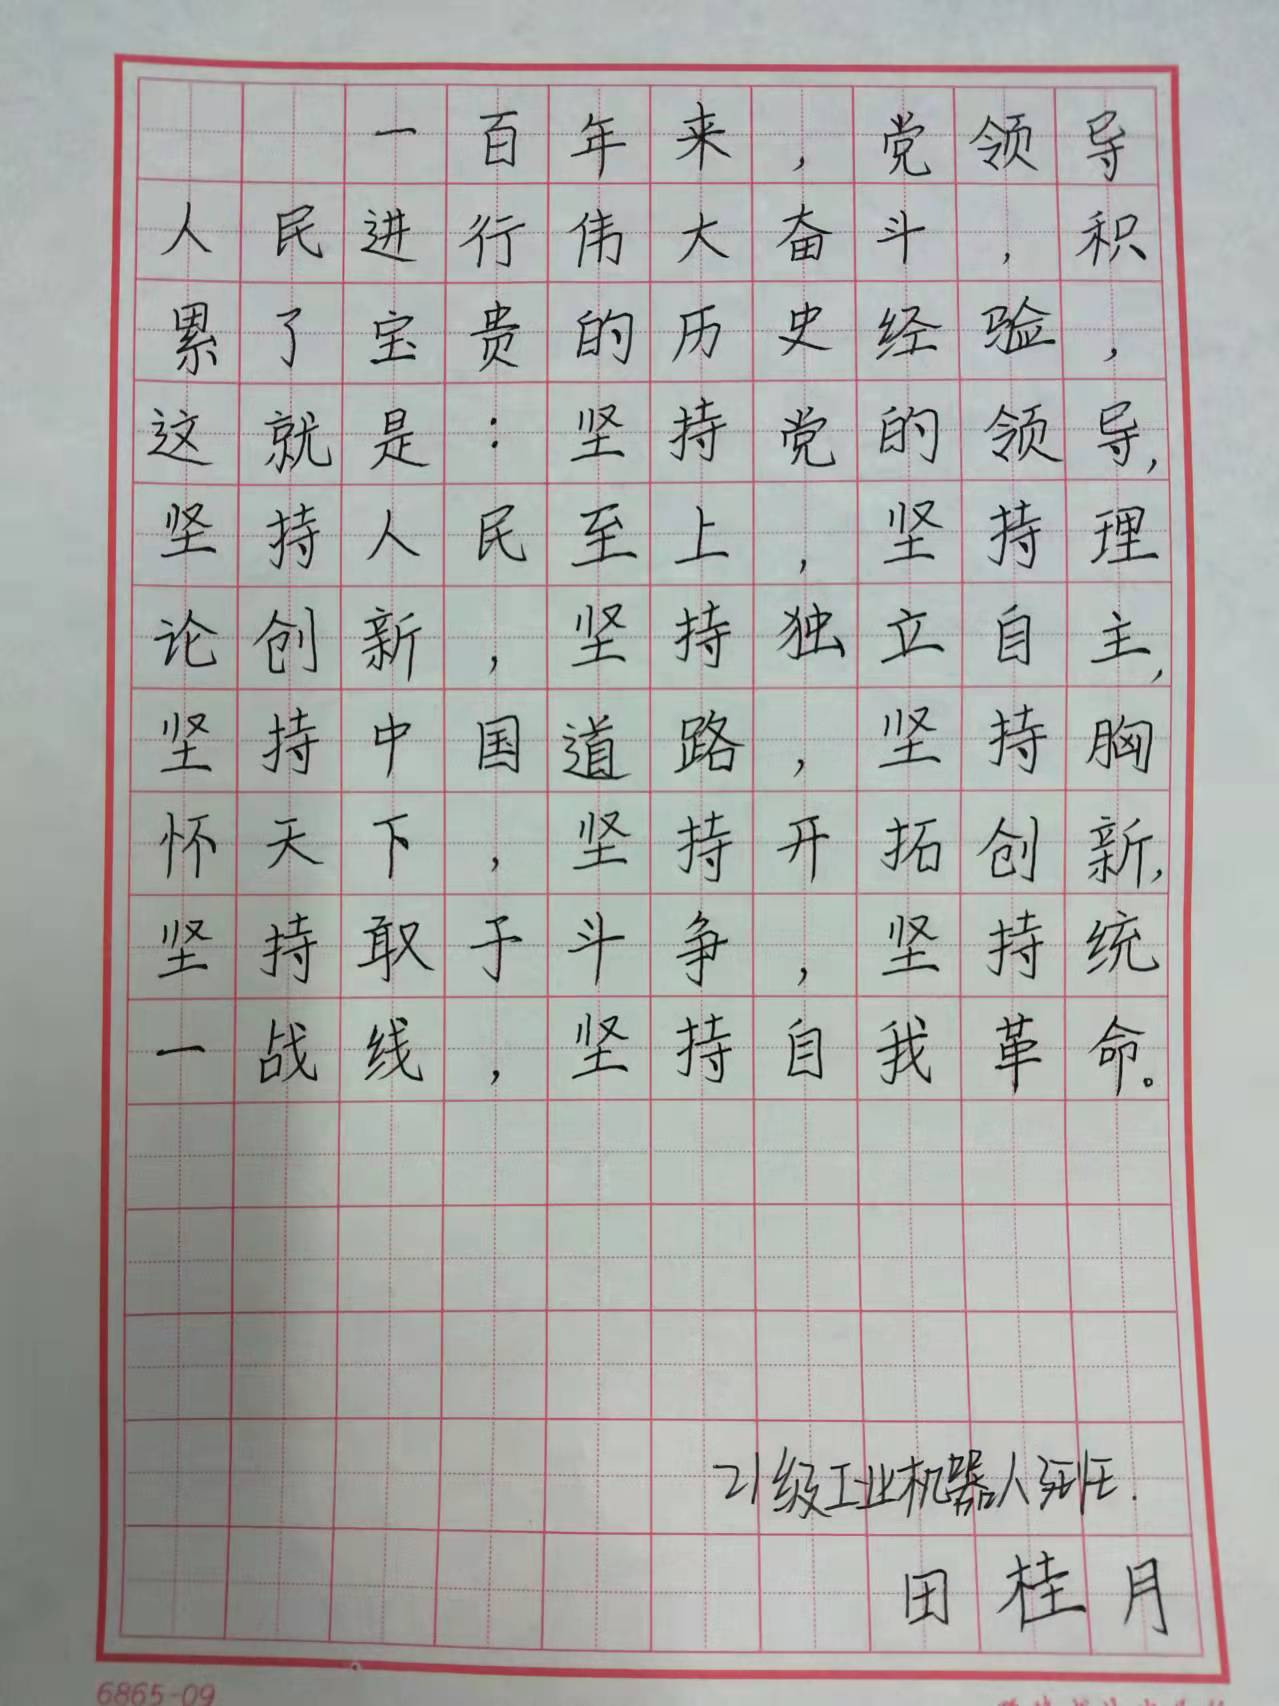 一百年来，党领导
人民进行伟大奋斗，积
累了宝贵的历史经验，
这就是：坚持党的领导，
坚持人民至上，坚持理
论创新，坚持独立自主，
坚持中国道路，坚持胸
怀天下，坚持开拓创新，
坚持敢于斗争，坚持统
一战线，坚持自我革命。
21级工业机器人班.
田桂月
6865-09